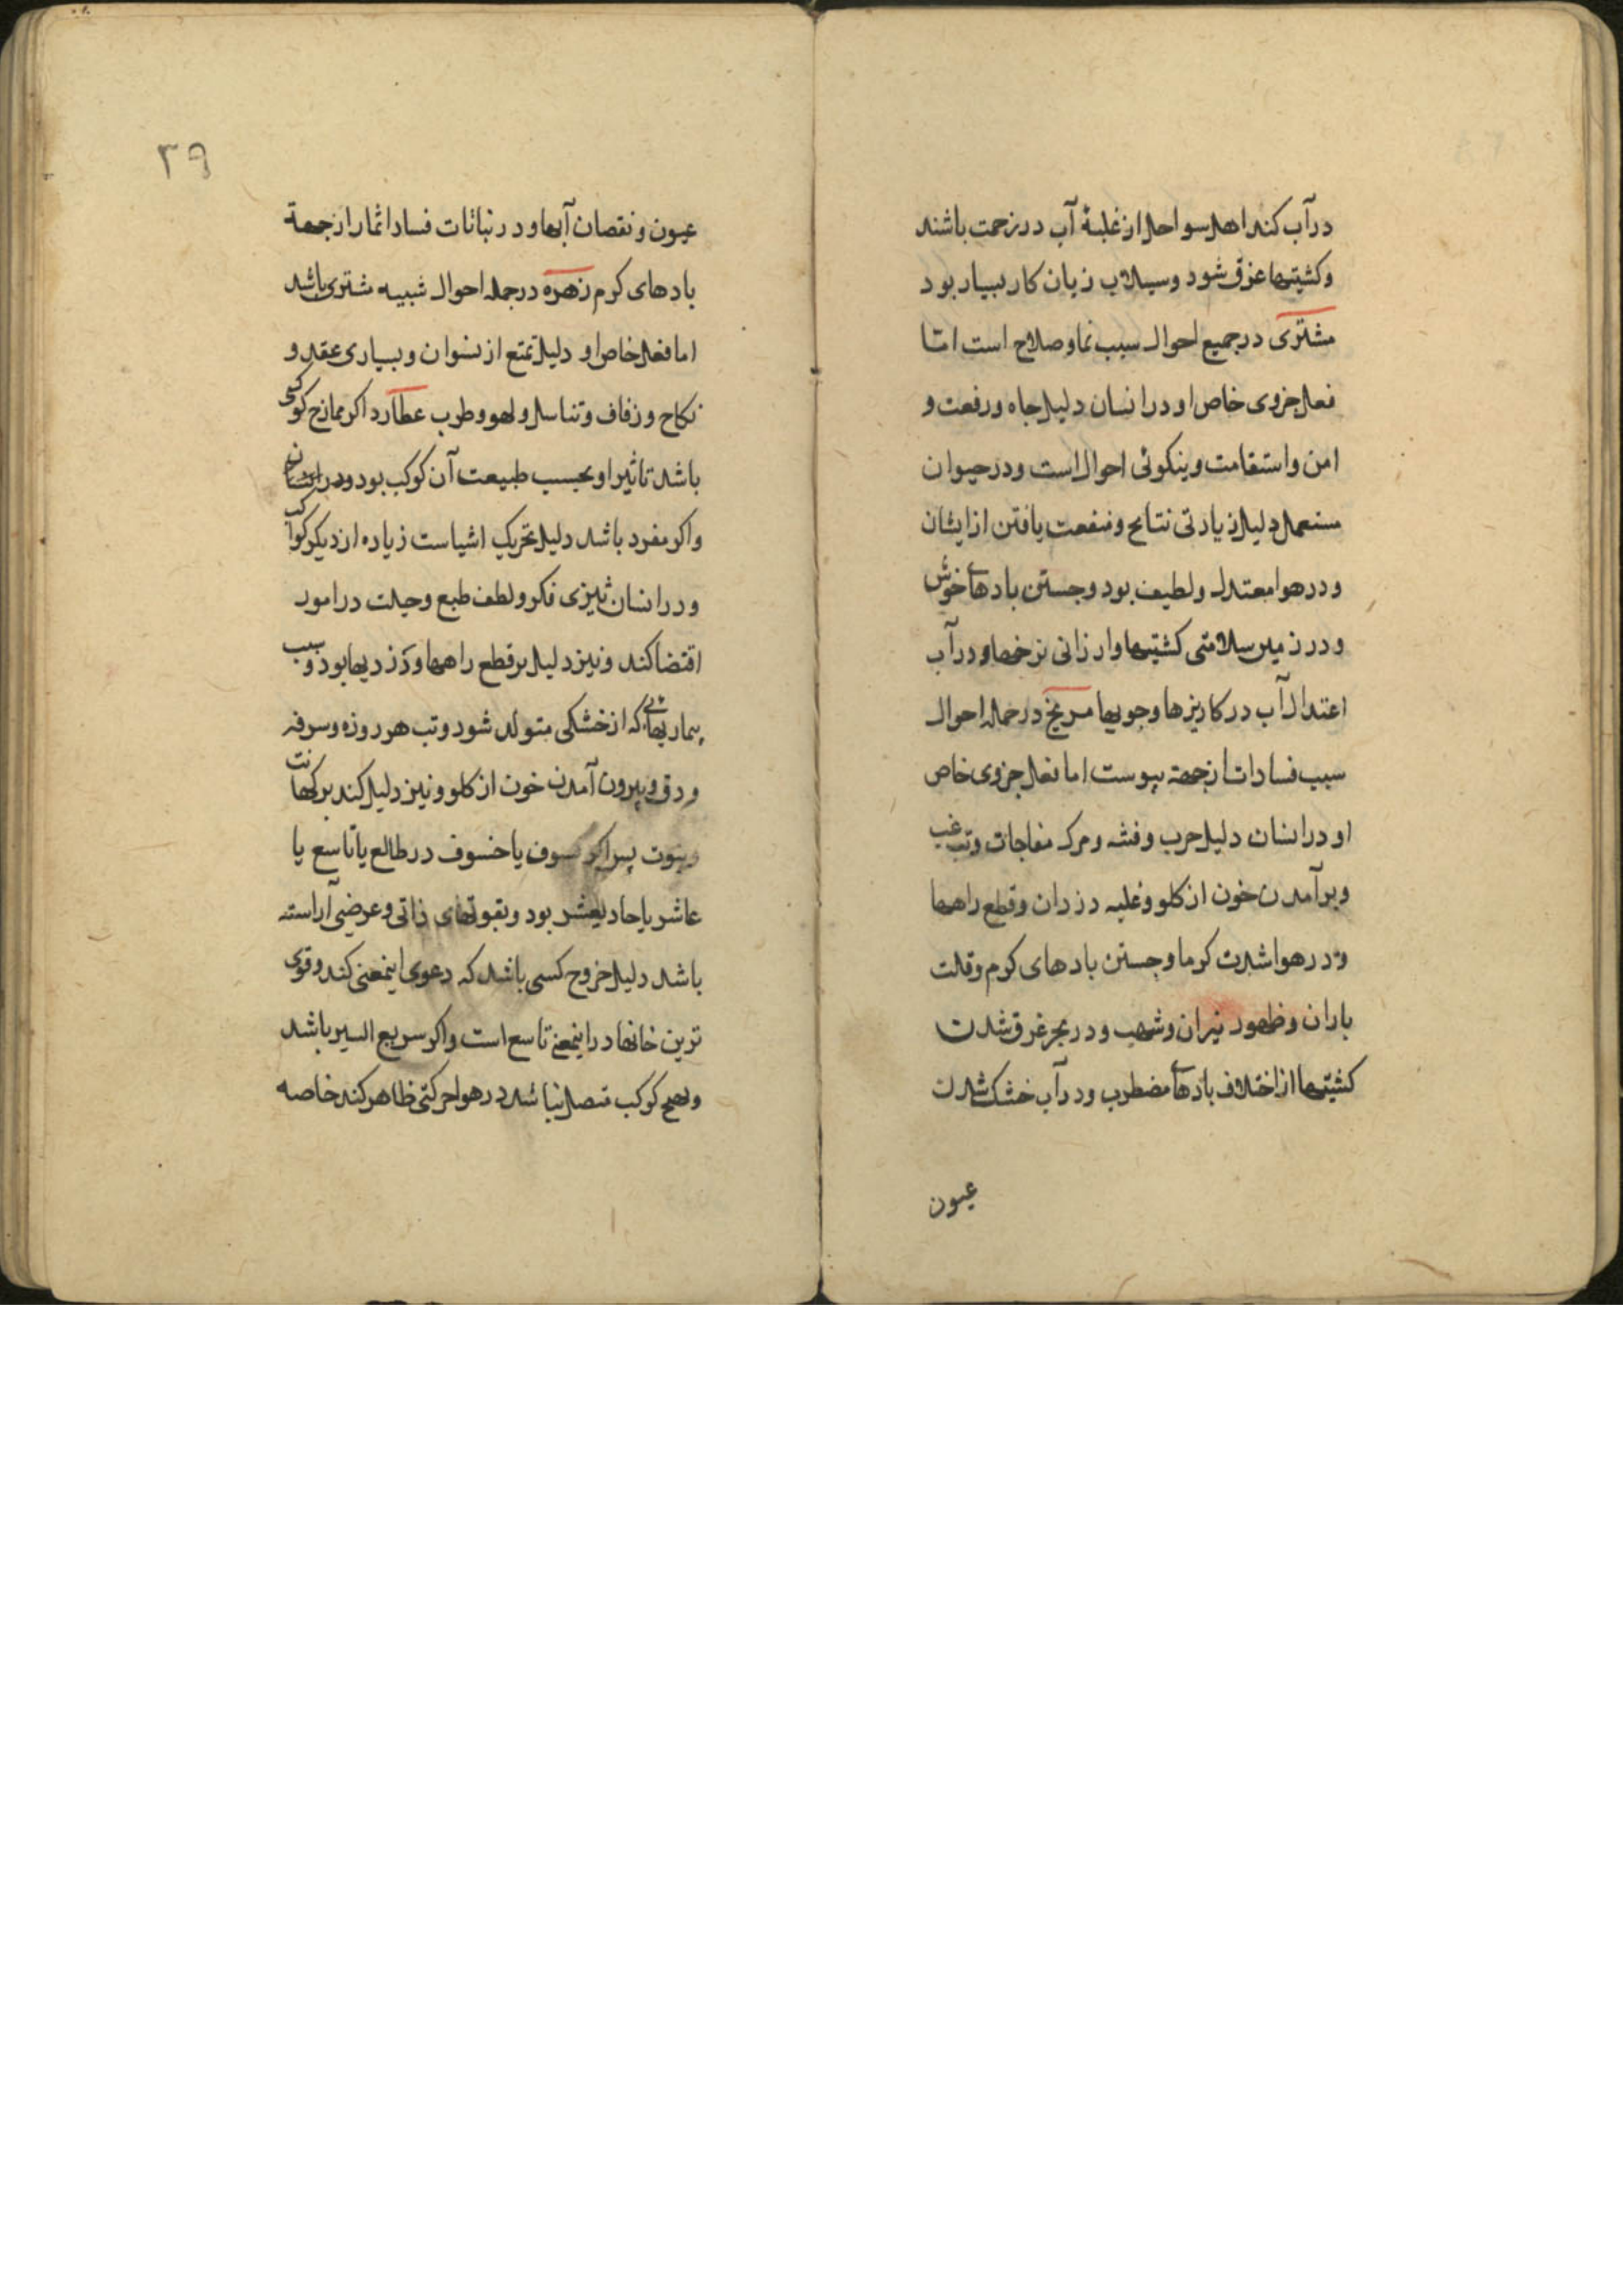 در آب کند اهل سواحل از غلبهٔ آب در زحمت باشند
و کشتیها غرق شود و سیلاب زیان کار بسیار بود
مشتری در جمیع احوال سبب نما و صلاح است امّا
فعل جزوی خاص او در انسان دلیل جاه و رفعت و
امن و استقامت و نیکوئی احوال است و در حیوان
مستعمل دلیل زیادتی نتایج و منفعت یافتن از ایشان
و در هوا معتدل و لطیف بود و جستن بادهاے خوش
و در زمین سلامتی کشتیها و ارزانی نرخها و در آب
اعتدال آب در کاریزها و جویها مریخ در جمله احوال
سبب فسادات از جهة یبوست اما فعل جزوی خاص
او در انسان دلیل حرب و فتنه و مرک مفاجات و تب غب
و برآمدن خون از کلو و غلبه دزدان و قطع راهها
و در هوا شدت کرما و جستن بادهای کرم و قلت
باران و ظهور نیران و شهب و در بحر غرق شدن
کشتیها از اختلاف بادهاے مضطرب و در آب خشک شدن
عیون
۲۹
عیون و نقصان آبها و در نباتات فساد اثمار از جهة
بادهای کرم زهره در جمله احوال شبیه مشتری باشد
اما فعل خاص او دلیل تمتع از نسوان و بسیاری عقد و
نکاح و زفاف و تناسل و لهو و طرب عطارد اکر ممازج کوکبی
باشد تاثیر او بحسب طبیعت آن کوکب بود و در انسان
واکر مفرد باشد دلیل تحریک اشیاست زیاده از دیکر کواکب
و در انسان تیزی فکر و لطف طبع و حیلت در امور
اقتضا کند و نیز دلیل بر قطع راهها و دزدیها بود و سبب
بیماریهائی که از خشکی متولد شود و تب هر روزه و سرفه
و دق و بیرون آمدن خون از کلو و نیز دلیل کند بر کهانت
و نبوت پس اکر کسوف یا خسوف در طالع یا تاسع یا
عاشر یا حادیعشر بود و بقوتهای ذاتی و عرضی آراسته
باشد دلیل خروج کسی باشد که دعوی اینمعنی کند و قوی
ترین خانها در اینمعنی تاسع است و اکر سریع السیر باشد
و بهیچ کوکب متصل نباشد در هوا حرکتی ظاهر کند خاصه